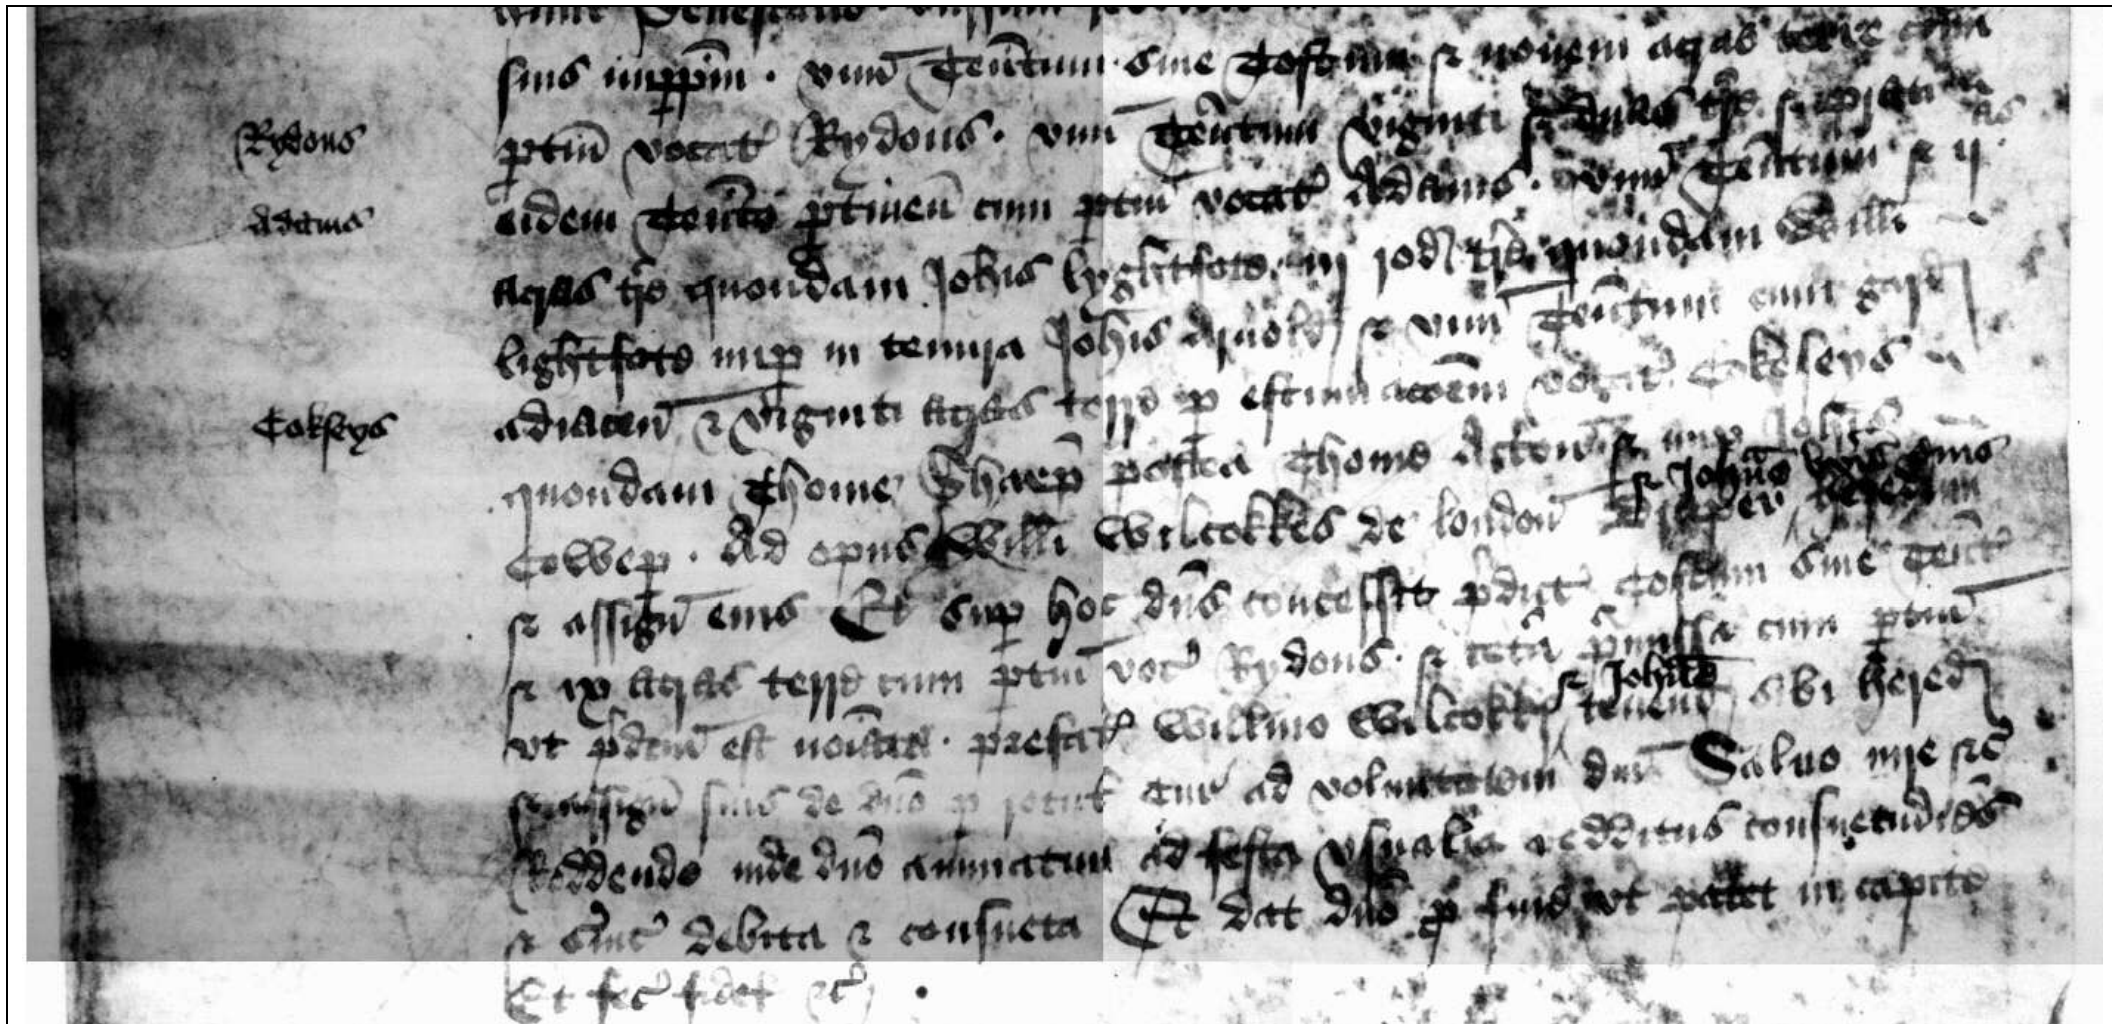 suis imppm . unu Tentum sine Toftum & novem acras terre cum
Rydons
ptin vocat Rydons . unu Tentum viginti & duas
Adams
eidem Tento ptinen cum ptin vocat Adams . unu Tentum & ij as
acras tre quondam Johis lyghtfote iij rod tre quondam Willi
lightfote nup in tenura Johis Arnold & unu Tentum cum gard
Cokseys
adiacen & viginti acras terre p estimacoem vocat Cokeseys
quondam Thome Sharp postea Thome Acton & nup Johis
& Johne uxis eius
Cowep . Ad opus Willi Wilcokkes de london Draper hered
& assign eius Et sup hoc dns concessit pdict Toftum sine Tent
& ix acras terre cum ptin voc Rydons . & cetа pmissa cum ptin
& Johne
ut pdcm est noiat . prefat Willmo Wilcokk tenend sibi hered
& assign suis de dno p rotul cur ad voluntatem dni Salvo iure &c
Reddendo inde dno annuatim ad festa usualia redditus consuetudines
& svic debita & consueta Et dat dno p fine ut patet in capite
Et fec fidel &c